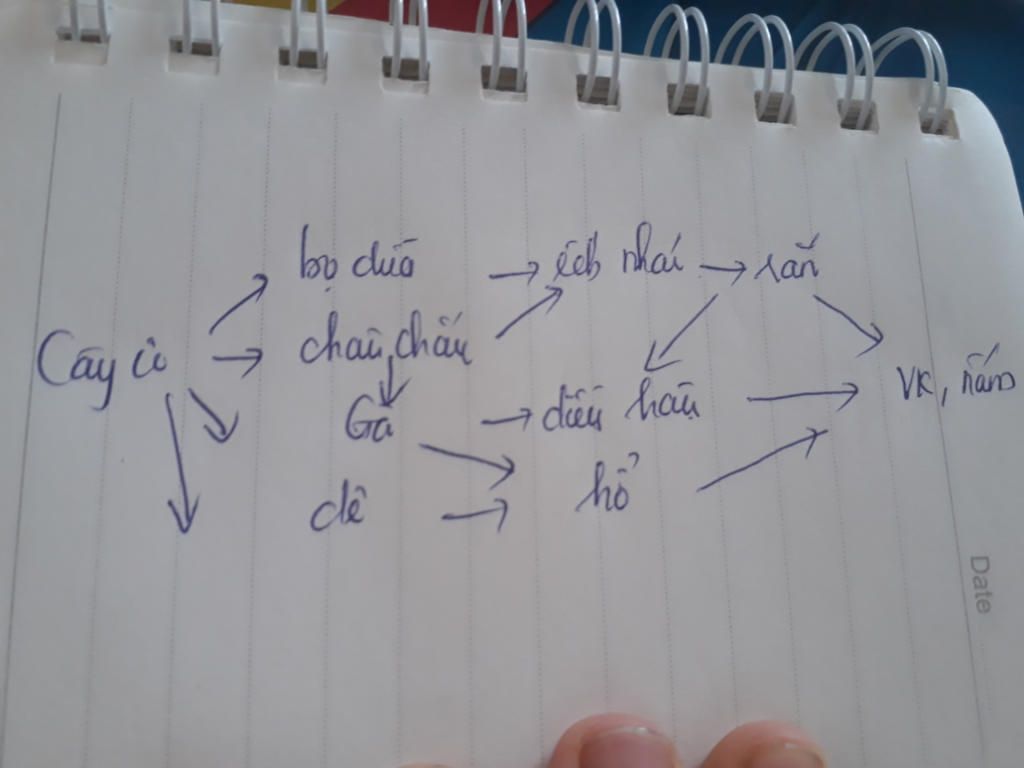 bọ dừa → ếch nhái → rắn
Cây cỏ → châu chấu
Gà → diều hâu → VK, nấm
dê → hổ
Date